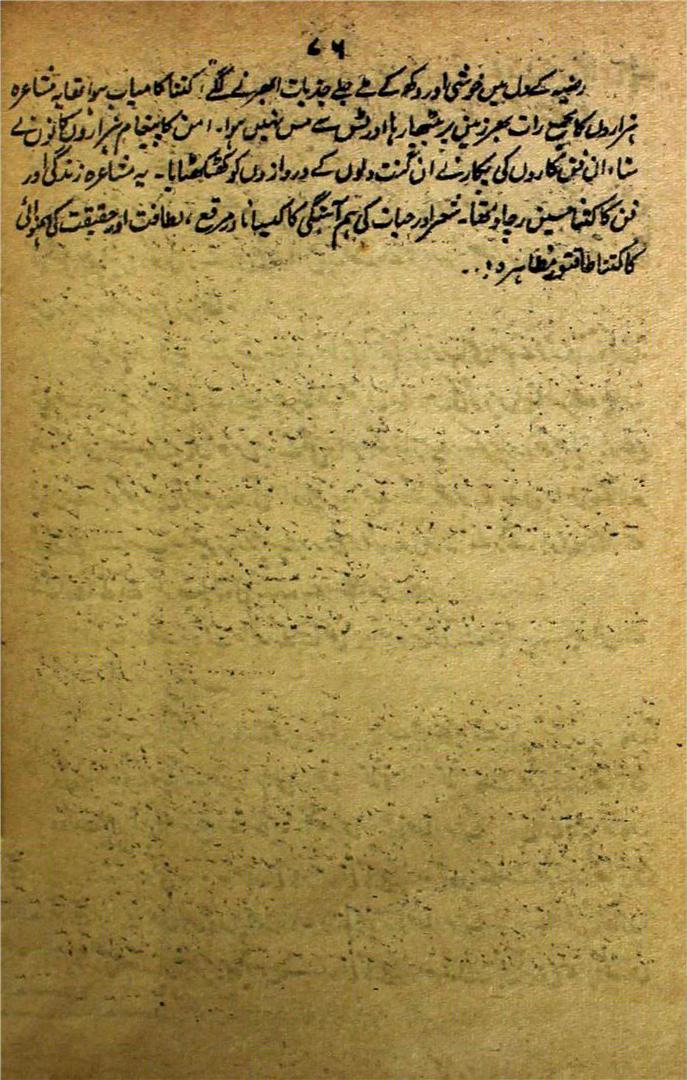 ۷۶
رضیہ کے دل میں خوشی اور دکھ کے ملے جلے جذبات ابھرنے لگے، کتنا کامیاب ہوا تھا یہ مشاعرہ
ہزاروں کا مجمع رات بھر زمین پر بیٹھا رہا اور ٹس سے مس نہیں ہوا۔ امن کا پیغام ہزاروں کانوں نے
سنا، ان فن کاروں کی پکار نے ان گنت دلوں کے دروازوں کو کھٹکھٹایا۔ یہ مشاعرہ زندگی اور
فن کا کتنا حسین رچاؤ تھا۔ شعر اور حیات کی ہم آہنگی کا کیسا نادر مرقع، لطافت اور حقیقت کی ہمنوائی
کا کتنا طاقتور مظاہرہ!..